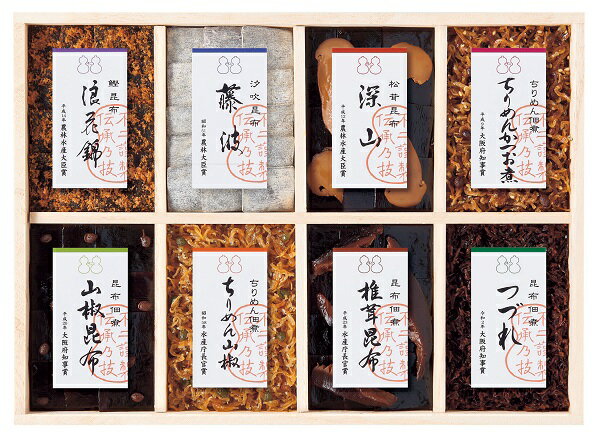 鰹昆布
浪花錦
平成14年 農林水産大臣賞
汐吹昆布
藤波
昭和51年 農林大臣賞
松茸昆布
深山
平成12年 農林水産大臣賞
ちりめん佃煮
ちりめんかつお煮
大阪府知事賞
昆布佃煮
山椒昆布
平成20年 大阪府知事賞
ちりめん佃煮
ちりめん山椒
水産庁長官賞
昆布佃煮
椎茸昆布
大阪府知事賞
昆布佃煮
つづれ
令和2年 大阪府知事賞
伝承乃技
伝承乃技
伝承乃技
伝承乃技
伝承乃技
伝承乃技
伝承乃技
伝承乃技